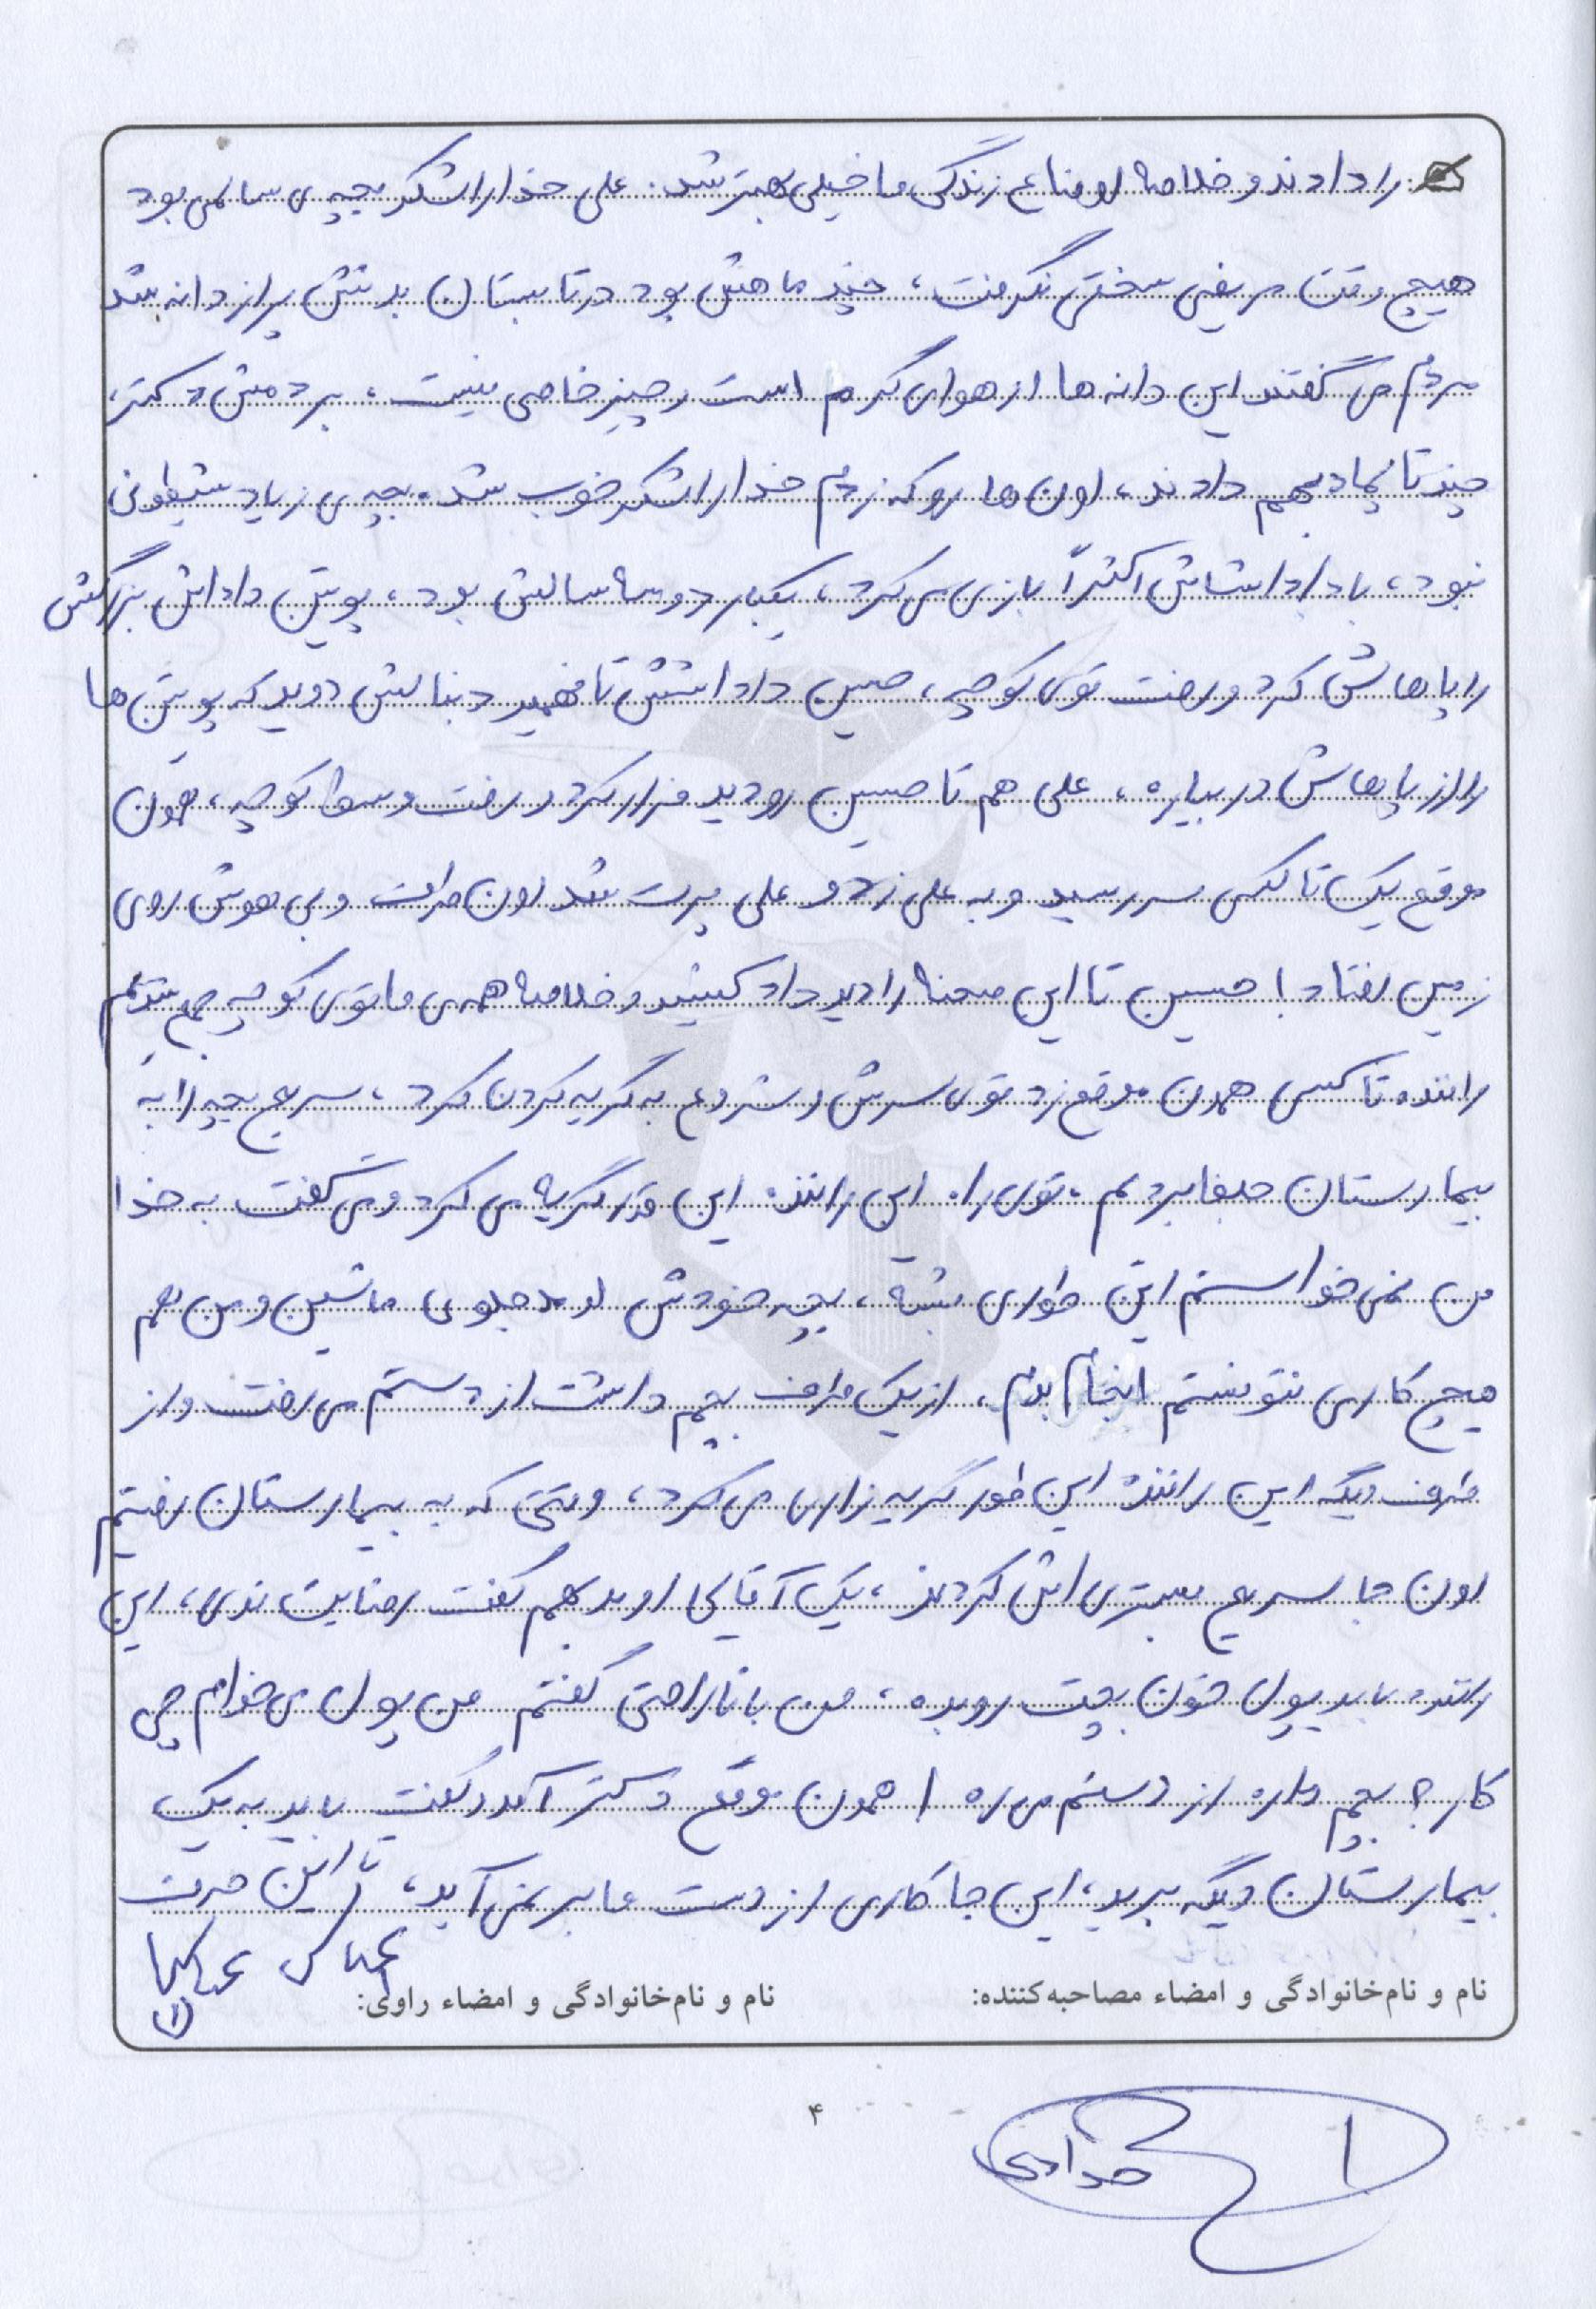 را دادند و خلاصه اوضاع زندگی ما خیلی بهتر شد. علی خدا را شکر بچه‌ی سالمی بود
هیچ وقت مریضی سختی نگرفت، چند ماهش بود در تابستان بدنش پر از دانه شد
مردم می‌گفتند این دانه‌ها از هوای گرم است و چیز خاصی نیست، بردمش دکتر،
چند تا پماد بهم دادند، اون‌ها رو که زدم خدا را شکر خوب شد. بچه‌ی زیاد شیطونی
نبود، با داداشاش اکثراً بازی می‌کرد، یکبار دو سه سالش بود، پوتین داداش بزرگش
را پاهاش کرد و رفت توی کوچه، حسین داداشش تا فهمید دنبالش دوید که پوتین‌ها
را از پاهاش در بیاره، علی هم تا حسین رو دید فرار کرد و رفت وسط کوچه، همون
موقع یک تاکسی سر رسید و به علی زد و علی پرت شد اون طرف و بی‌هوش روی
زمین افتاد! حسین تا این صحنه را دید داد کشید و خلاصه همه‌ی ما توی کوچه جمع شدیم
راننده تاکسی همون موقع زد توی سرش و شروع به گریه کردن کرد، سریع بچه را به
بیمارستان حلفا بردیم. توی راه این راننده این قدر گریه می‌کرد و می‌گفت به خدا
من نمی‌خواستم این طوری بشه، بچه خودش اومد جلوی ماشین و من هم
هیچ کاری نتونستم انجام بدم، از یک طرف بچم داشت از دستم می‌رفت و از
طرف دیگه این راننده این طور گریه زاری می‌کرد، وقتی که به بیمارستان رفتیم
اون جا سریع بستری‌اش کردند، یک آقایی اومد بهم گفت رضایت ندی، این
راننده باید پول خون بچت رو بده، من با ناراحتی گفتم من پول می‌خوام چی
کار؟ بچم داره از دستم می‌ره! همون موقع دکتر آمد و گفت باید به یک
بیمارستان دیگه برید، این جا کاری از دست ما بر نمی‌آید، تا این حرف
نام و نام‌خانوادگی و امضاء مصاحبه‌کننده:
نام و نام‌خانوادگی و امضاء راوی:
۴